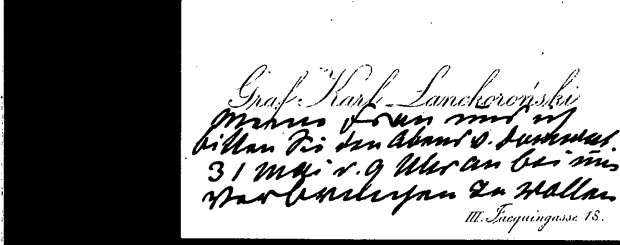 Graf Karl Lanckoroński
Meine Frau und ich
bitten Sie den Abend v.
31 Mai v. 9 Uhr an bei uns
verbringen zu wollen
III. Jacquingasse 18.